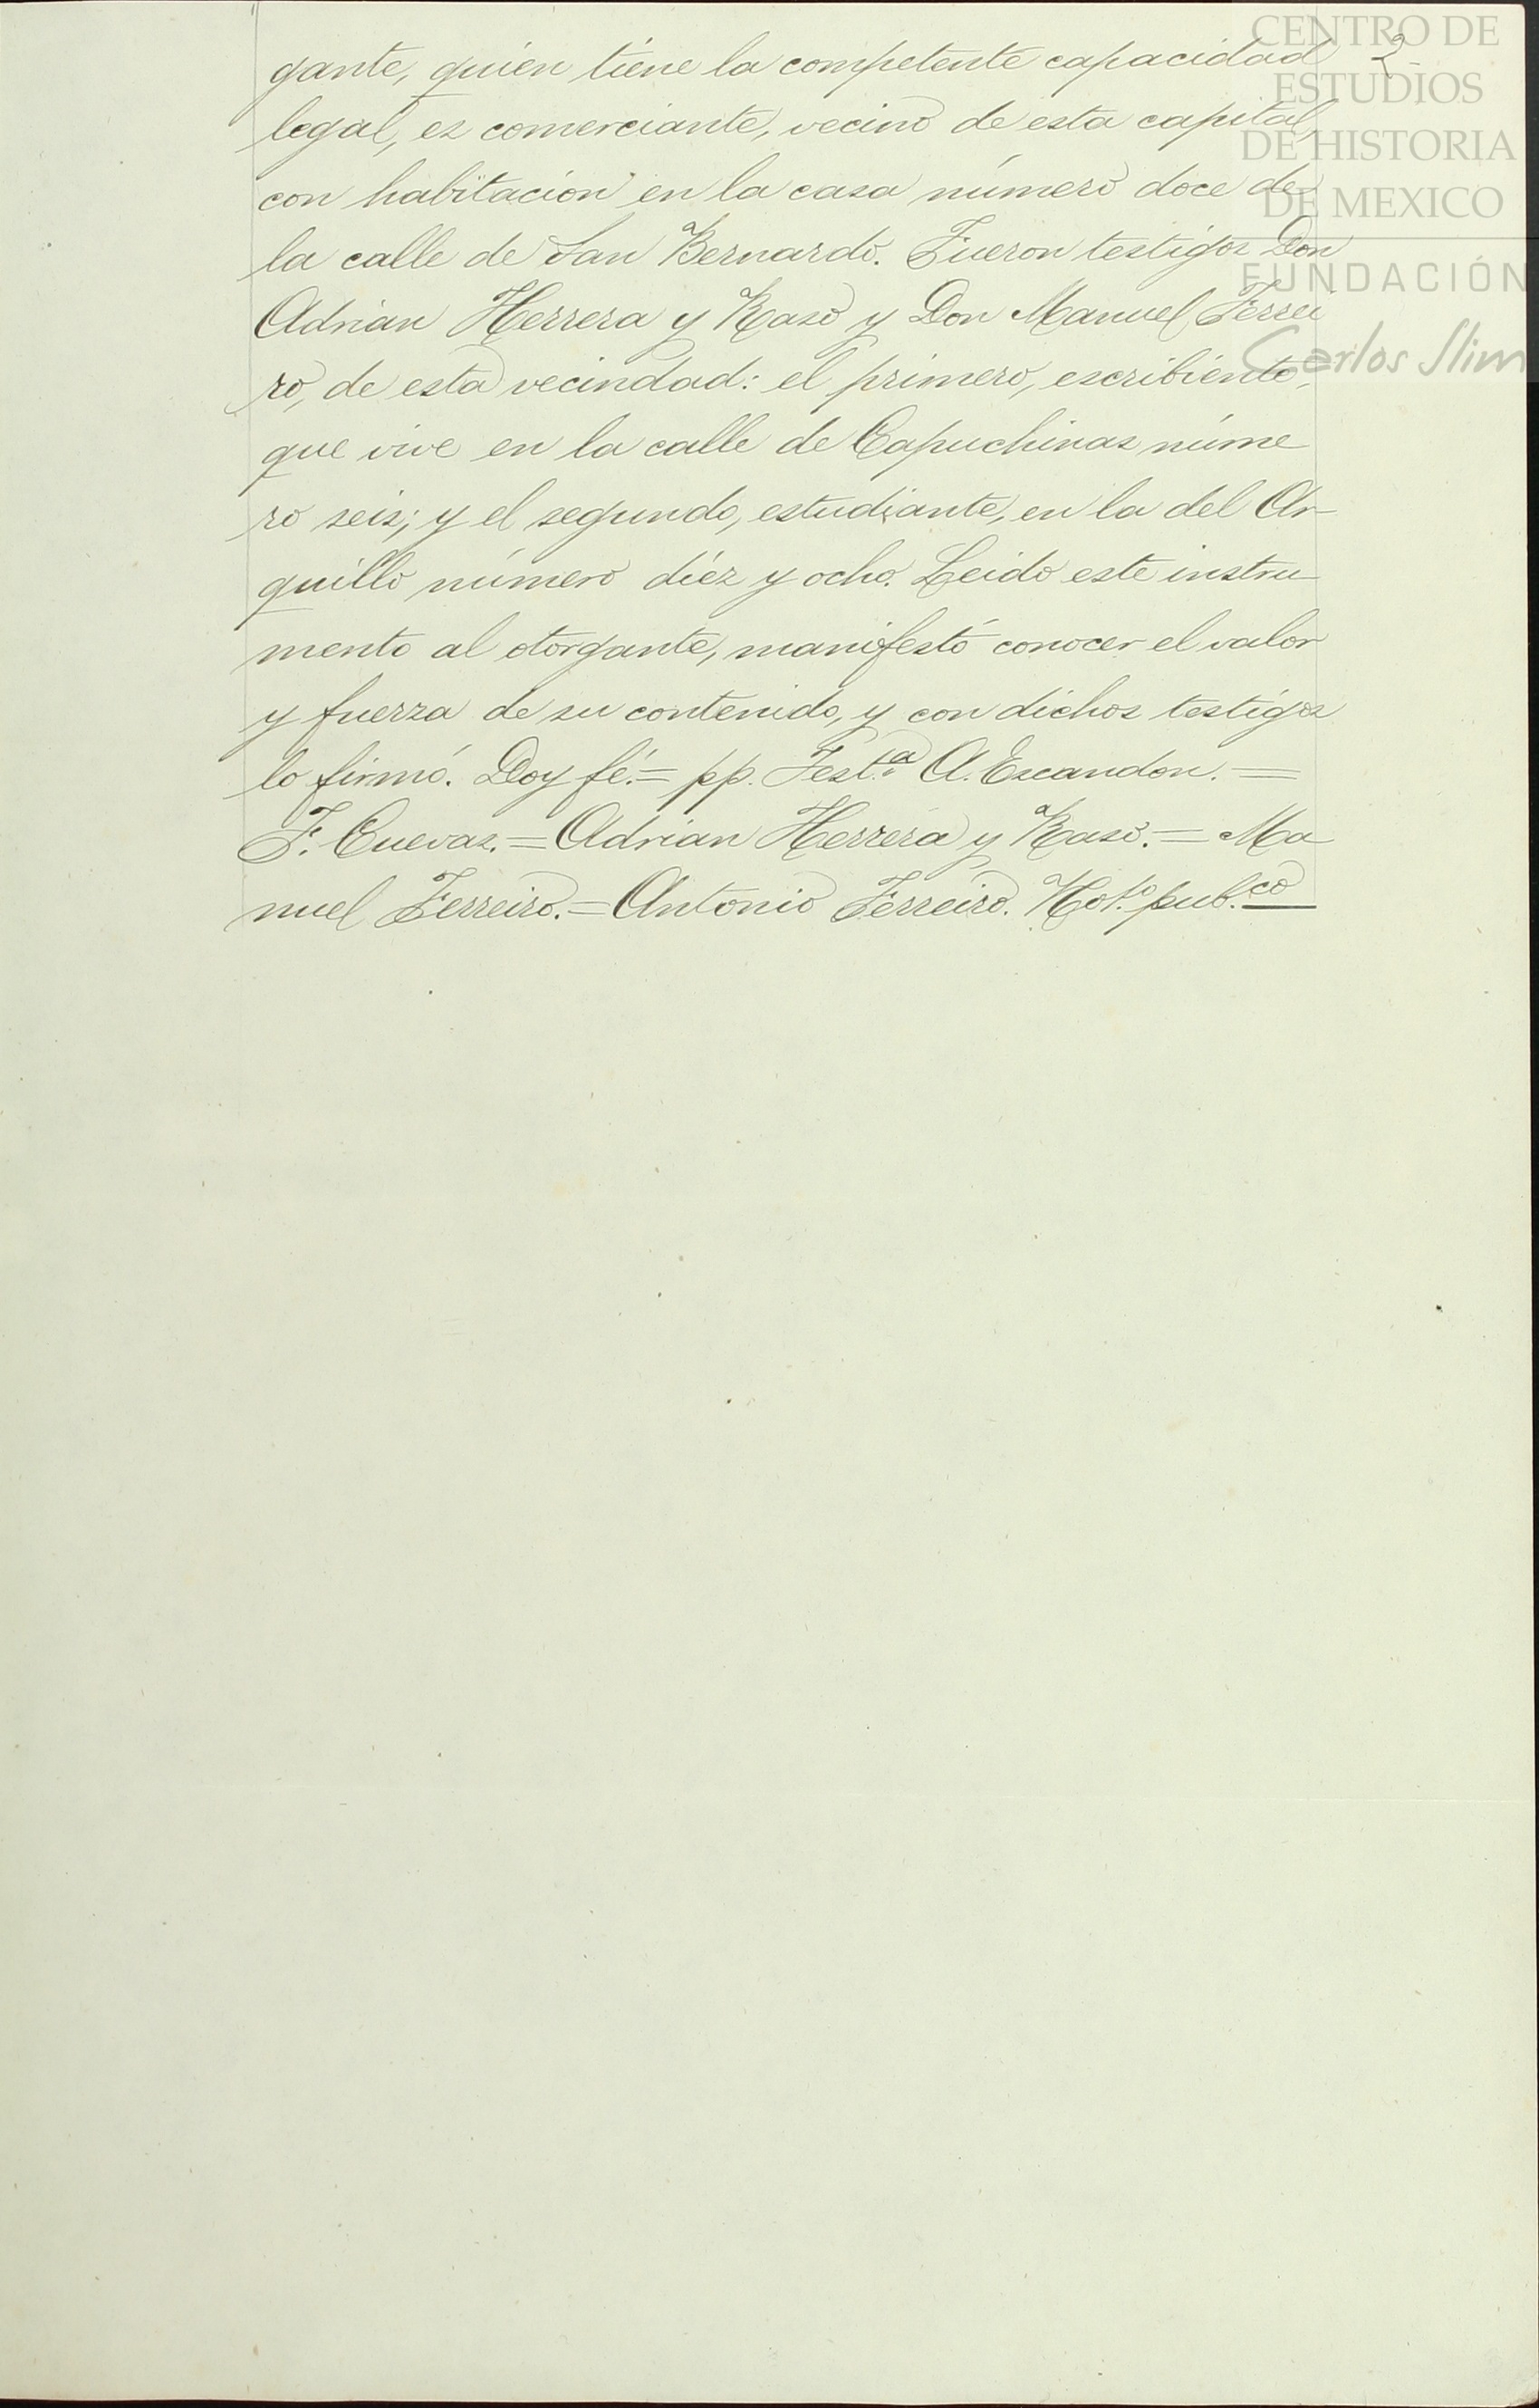 gante, quién tiene la competente capacidad
legal, es comerciante, vecino de esta capital,
con habitación en la casa número doce de
la calle de San Bernardo. Fueron testigos Don
Adrian Herrera y Raso y Don Manuel Ferrei
ro, de esta vecindad: el primero, escribiente,
que vive en la calle de Capuchinas núme
ro seis; y el segundo, estudiante, en la del Ar-
quillo número diéz y ocho. Leido este instru-
mento al otorgante, manifestó conocer el valor
y fuerza de su contenido, y con dichos testigos
lo firmó. Doy fé.= pp. Test.ª A. Escandon.=
F. Cuevas.= Adrian Herrera y Raso.= Ma
nuel Ferreiro.= Antonio Ferreiro. Not.º pub.co
2
CENTRO DE
ESTUDIOS
DE HISTORIA
DE MEXICO
FUNDACIÓN
Carlos Slim